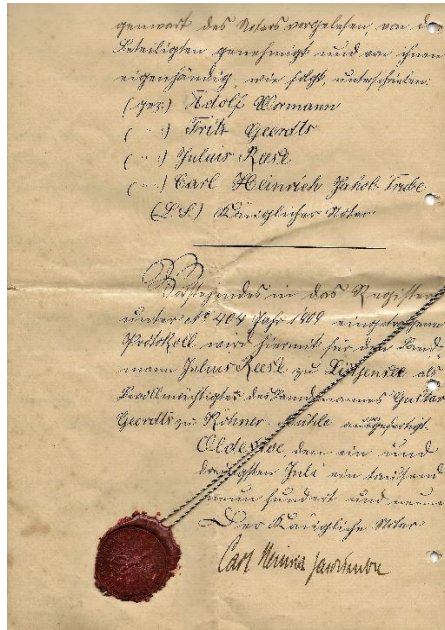 genwart des Notars vorgelesen, von den
Beteiligten genehmigt und von ihnen
eigenhändig, wie folgt, unterschrieben:
(gez:) Adolf Wormann
( " :) Fritz Geerdts
( " :) Julius Reese
( " :) Carl Heinrich Jakob
(L.S.) Königlicher Notar.
Vorstehendes in das Register
unter No 404 Jahr 1909 eingetragene
Protokoll wird hiermit für den Land-
mann Julius Reese zu als
Bevollmächtigter des Landmannes Gustav
Geerdts zu mühle ausgefertigt.
Oldesloe, den ein und
dreißigsten Juli ein tausend
neun hundert und neun
Der Königliche Notar
Carl